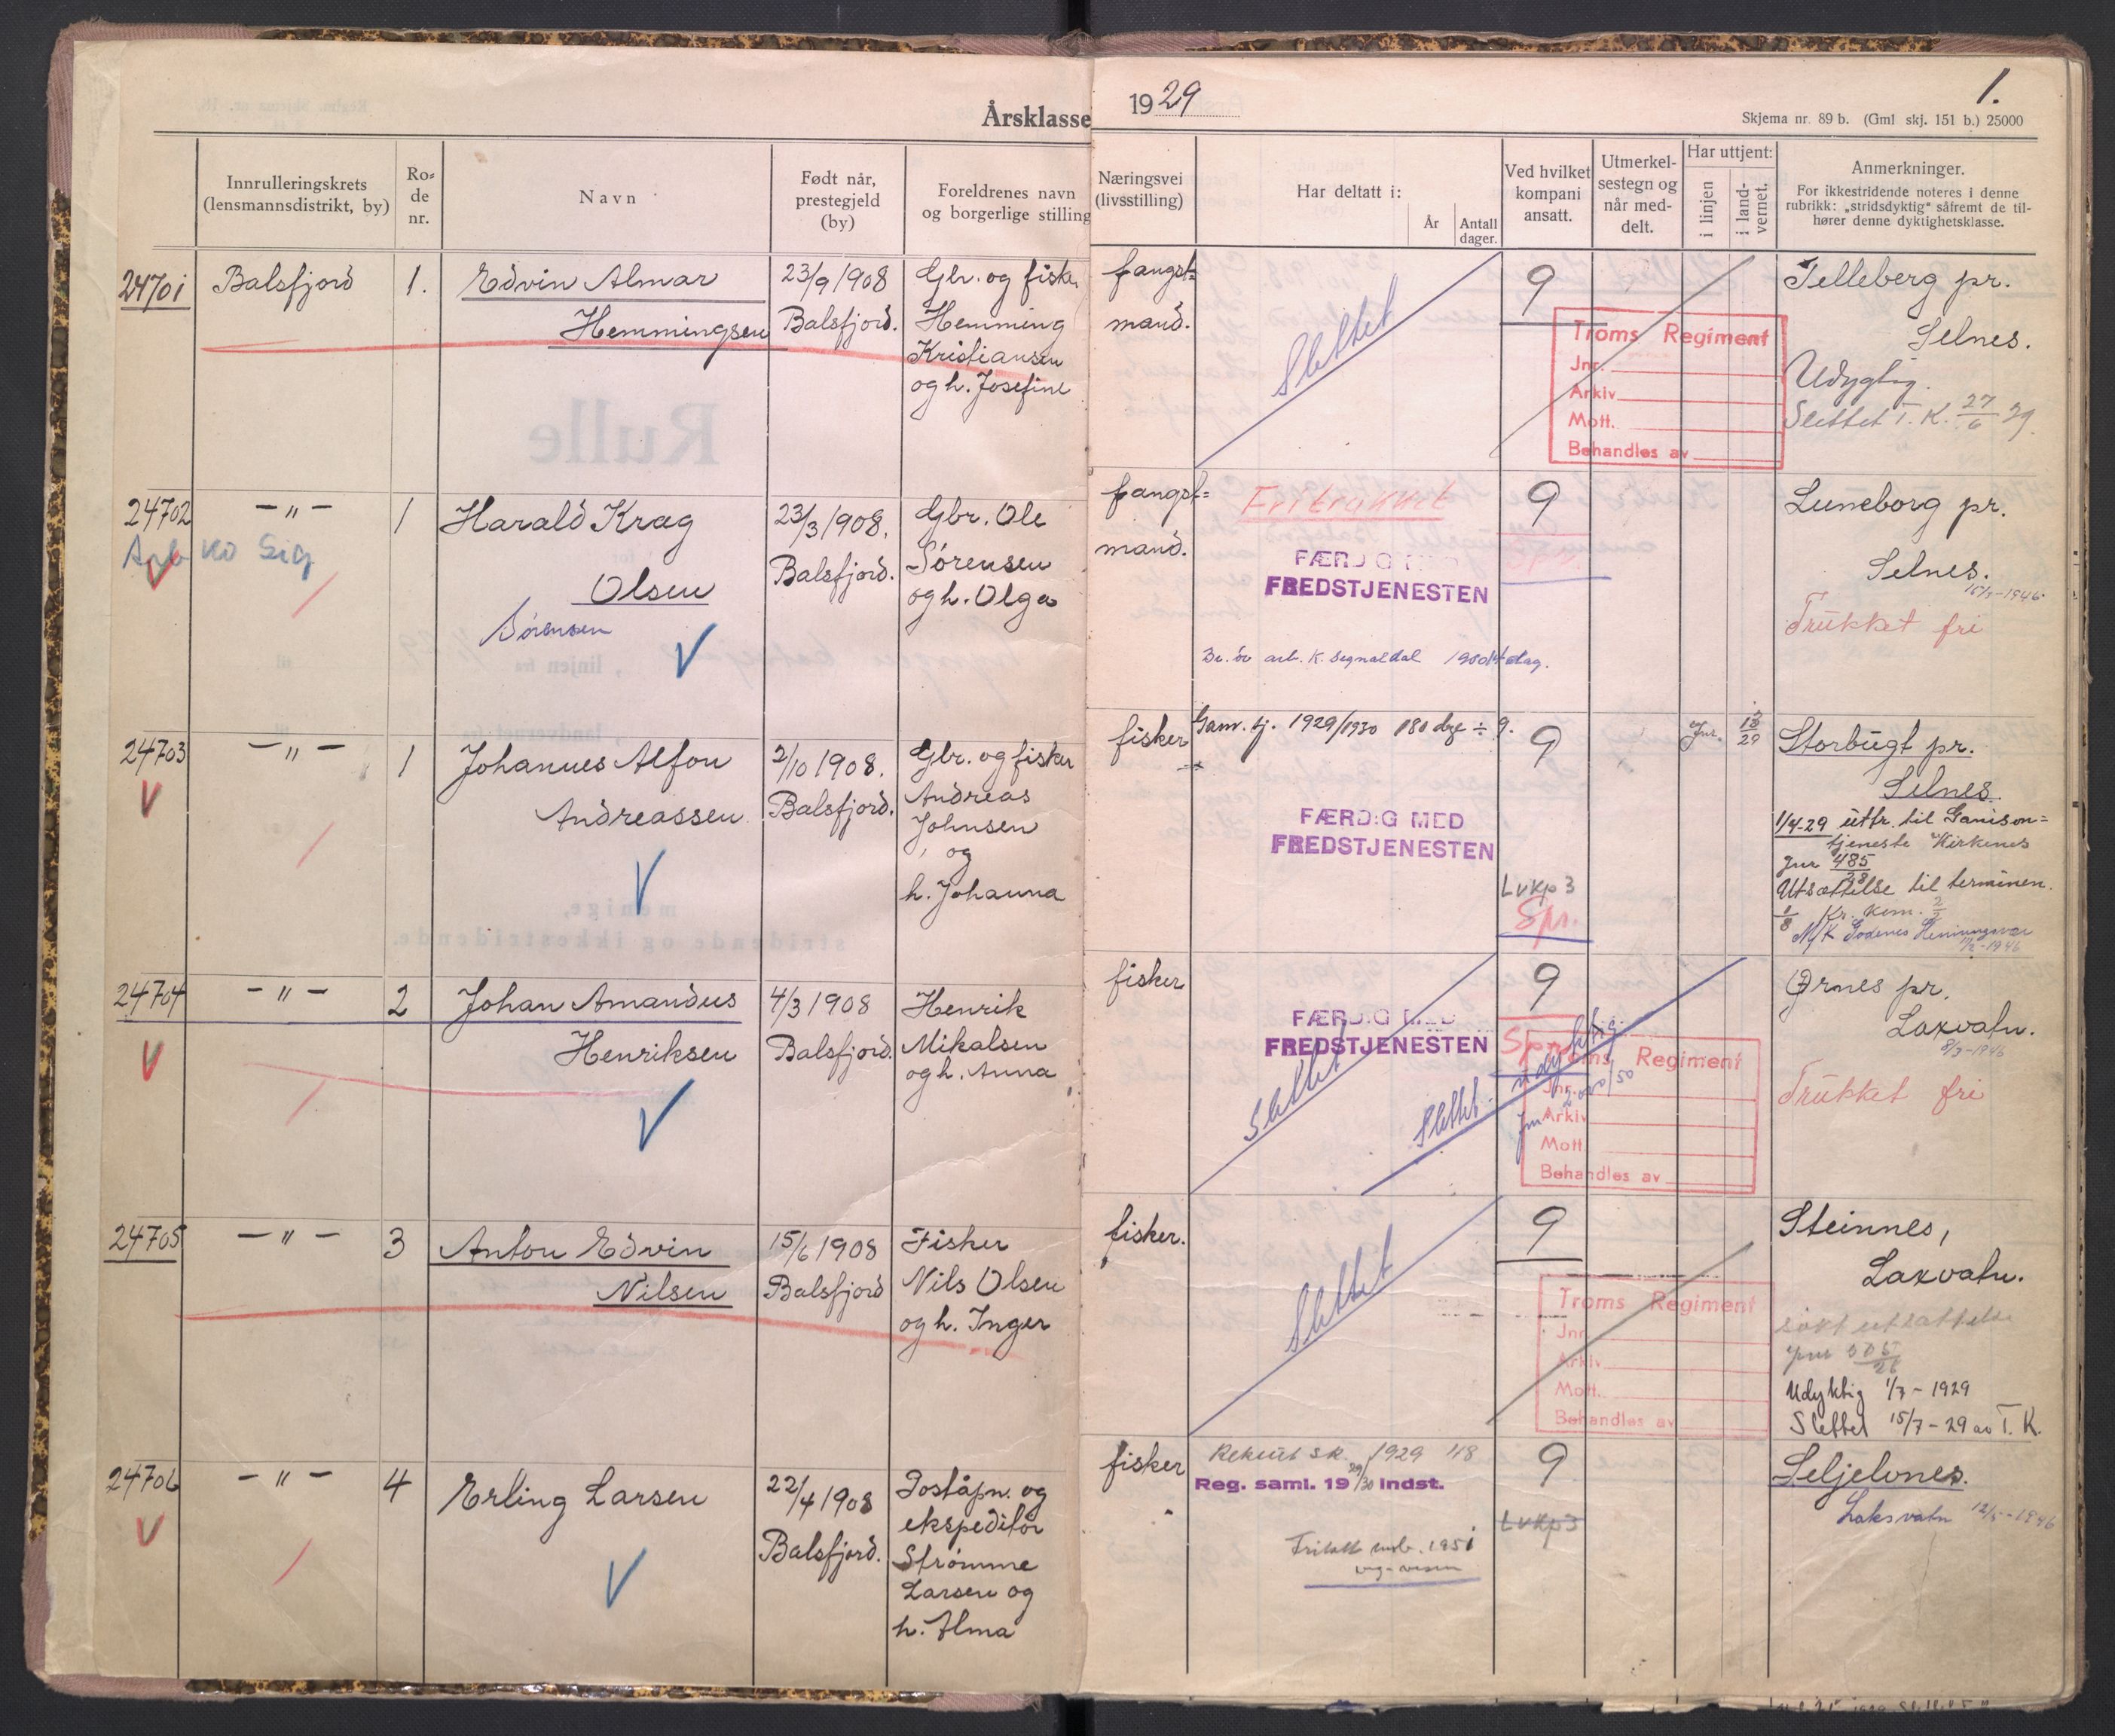 Årsklasse 1929
1.
Skjema nr. 89 b. (Gml skj. 151 b.) 25000
Innrulleringskrets
(lensmannsdistrikt, by)
Ro-
de
nr.
Navn
Født når,
prestegjeld
(by)
Foreldrenes navn
og borgerlige stilling
Næringsvei
(livsstilling)
Har deltatt i:
År
Antall
dager.
Ved hvilket
kompani
ansatt.
Utmerkel-
sestegn og
når med-
delt.
Har uttjent:
i linjen
i land-
vernet.
Anmerkninger.
For ikkestridende noteres i denne
rubrikk: „stridsdyktig“ såfremt de til-
hører denne dyktighetsklasse.
24701
Balsfjord
1.
Edvin Almar
Hemmingsen
23/9 1908
Balsfjord.
Gbr. og fisker
Hemming
Kristiansen
og h. Josefine
fangst=
mand.
Slettet
9
Troms Regiment
Jnr.
Arkiv
Mott.
Behandles av
Telleberg pr.
Selnes.
Udygtig.
Slettet T. K. 27/6 29.
24702
Arb ko Sig
— " —
1
Harald Krag
Olsen
Sörensen
23/3 1908.
Balsfjord.
Gbr. Ole
Sörensen
og h. Olga
fangst=
mand.
Fritrukket
FÆRDIG MED
FREDSTJENESTEN
arb. K. Signaldal
9
Luneborg pr.
Selnes.
Trukket fri
24703
— " —
1
Johannes Alfon
Andreassen
2/10 1908.
Balsfjord.
Gbr. og fisker
Andreas
Johnsen
og
h. Johanna
fisker
Garn. tj. 1929/1930 180 dg ÷ 9.
FÆRDIG MED
FREDSTJENESTEN
9
LvKp 3
Spr.
Jnr.
Storbugt pr.
Selnes.
1/4-29 uttr. til Garnison=
tjeneste Kirkenes
Jnr 485/28
Utsættelse til terminen.
24704
— " —
2
Johan Amandus
Henriksen
4/3 1908
Balsfjord.
Henrik
Mikalsen
og h. Anna
fisker
FÆRDIG MED
FREDSTJENESTEN
Slettet
Slettet udyktig
9
Spr.
Troms Regiment
Jnr.
Arkiv
Mott.
Behandles av
Ørnes pr.
Laxvatn.
8/3-1946
Trukket fri
24705
— " —
3
Anton Edvin
Nilsen
15/6 1908
Balsfjord
Fisker
Nils Olsen
og h. Inger
fisker.
Slettet
9
Troms Regiment
Jnr.
Arkiv
Mott.
Behandles av
Steinnes,
Laxvatn.
søkt utsættelse
Udyktig 1/7 - 1929
Slettet 15/7 - 29 av T. K.
24706
— " —
4
Erling Larsen
22/4 1908
Balsfjord.
Poståpn. og
ekspeditör
Strömme
Larsen og
h. Alma
fisker
Rekrutsk. 1929 48
Reg. saml. 1929/30 indst.
Fritatt mob. 1951
9
LvKp 3
Seljelvnes.
Laksvatn 12/5-1946